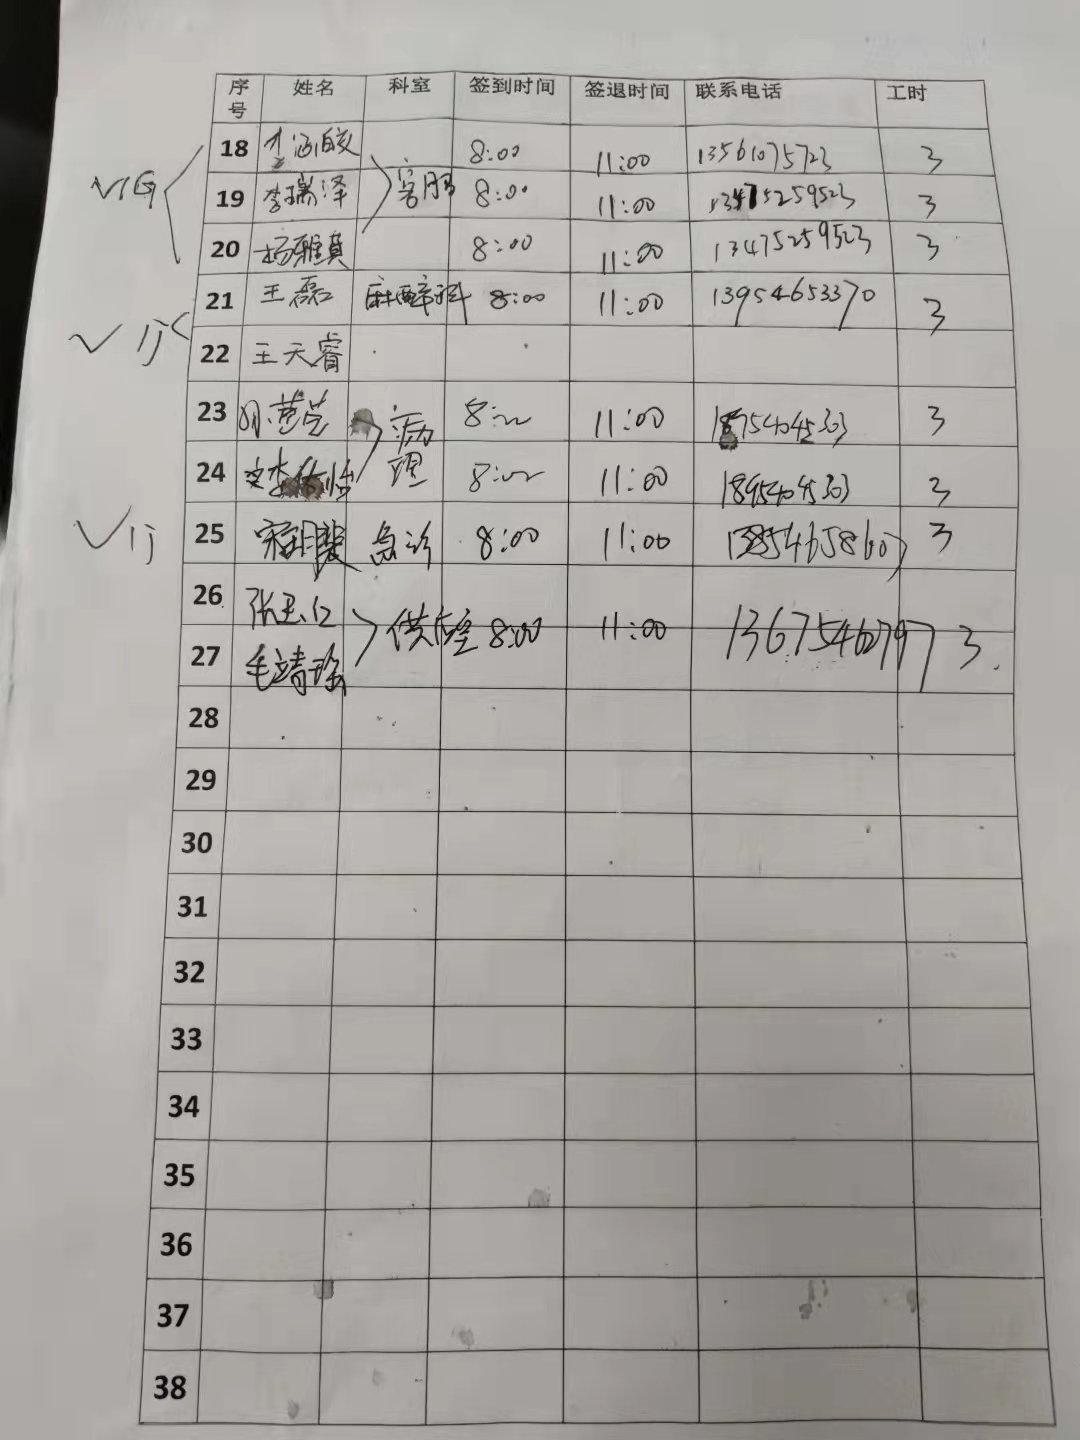 序号 姓名 科室 签到时间 签退时间 联系电话 工时
18 8:00 11:00 13561075723 3
19 李瑞泽 客服 8:00 11:00 13475259523 3
20 杨雅真 8:00 11:00 13475259523 3
21 王磊 麻醉科 8:00 11:00 13954653370 3
22 王天睿
23 病理 8:00 11:00 3
24 8:00 11:00 3
25 急诊 8:00 11:00 3
26 张玉仁 供应室 8:00 11:00 3
27 毛靖瑶
28
29
30
31
32
33
34
35
36
37
38